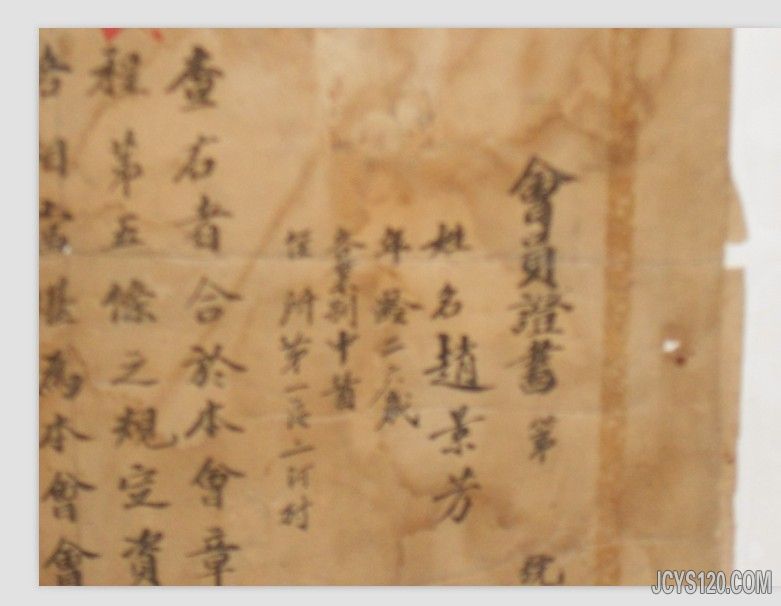 會員證書 第 號
姓名 趙景芳
年齡 二 歲
業別 中醫
住所 第一區 河村
查右者合於本會章
程第五條之規定資
格相當 為本會會
JCYS120.COM